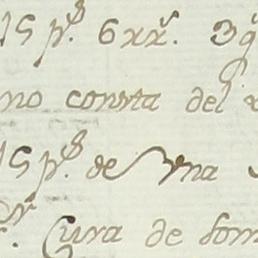 15 p.s 6 xx.s 3 q
no consta del
15 p.s de Yna
Cura de dom